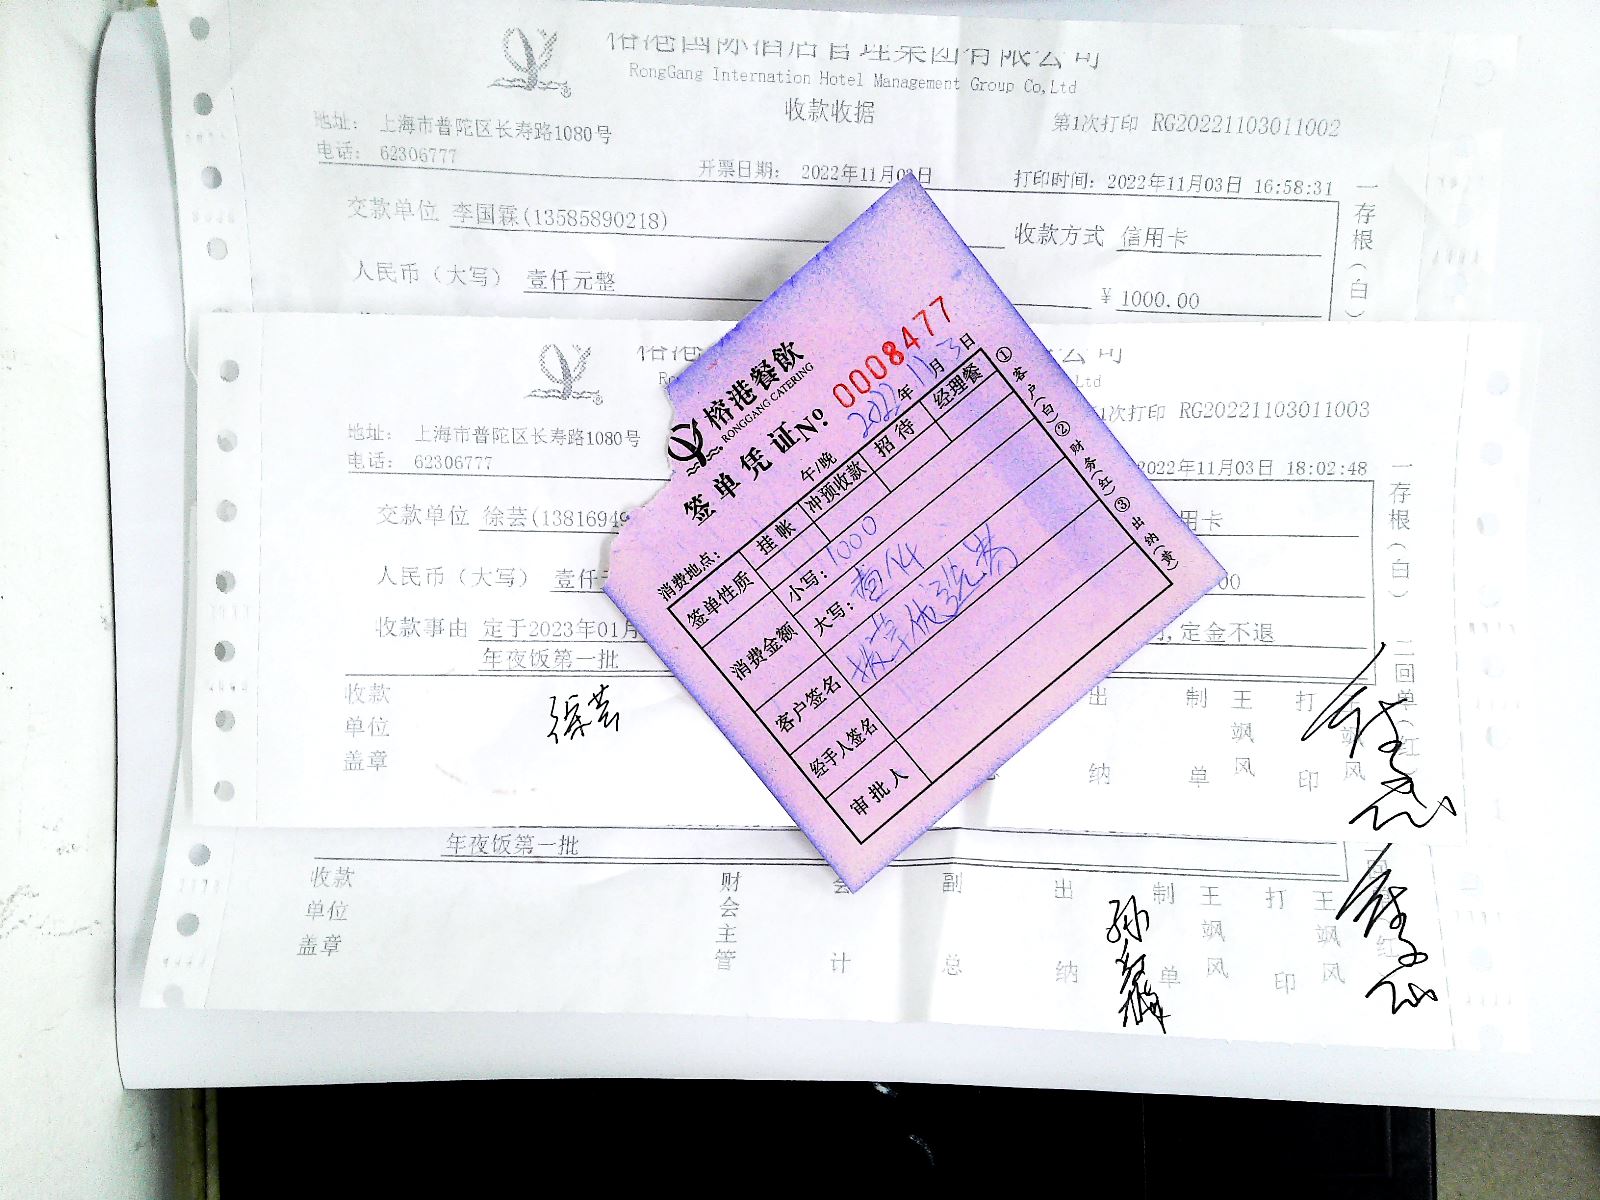 榕港国际酒店管理集团有限公司
RongGang Internation Hotel Management Group Co,Ltd
收款收据
地址: 上海市普陀区长寿路1080号
第1次打印 RG20221103011002
电话: 62306777
开票日期: 2022年11月03日
打印时间: 2022年11月03日 16:58:31
交款单位 李国霖(13585890218)
收款方式 信用卡
人民币(大写) 壹仟元整
¥ 1000.00
一存根(白)
榕港
公司
Ltd
1次打印 RG20221103011003
地址: 上海市普陀区长寿路1080号
电话: 62306777
2022年11月03日 18:02:48
交款单位 徐芸(1381694
用卡
人民币(大写) 壹仟
00
收款事由 定于2023年01月
,定金不退
年夜饭第一批
一存根(白) 二回单(红
收款单位盖章
徐芸
出纳
制单
王飒风
打印
王飒风
榕港餐飲
RONGGANG CATERING
签单凭证 №: 0008477
2022年11月3日
午/晚
消费地点:
签单性质 挂帐 冲预收款 招待 经理餐
消费金额 小写: 1000
大写: 壹仟
客户签名
经手人签名
审批人
①客户(白)②财务(红)③出纳(黄)
年夜饭第一批
收款单位盖章
财会主管
会计
副总
出纳
制单
王飒风
打印
王飒风
红